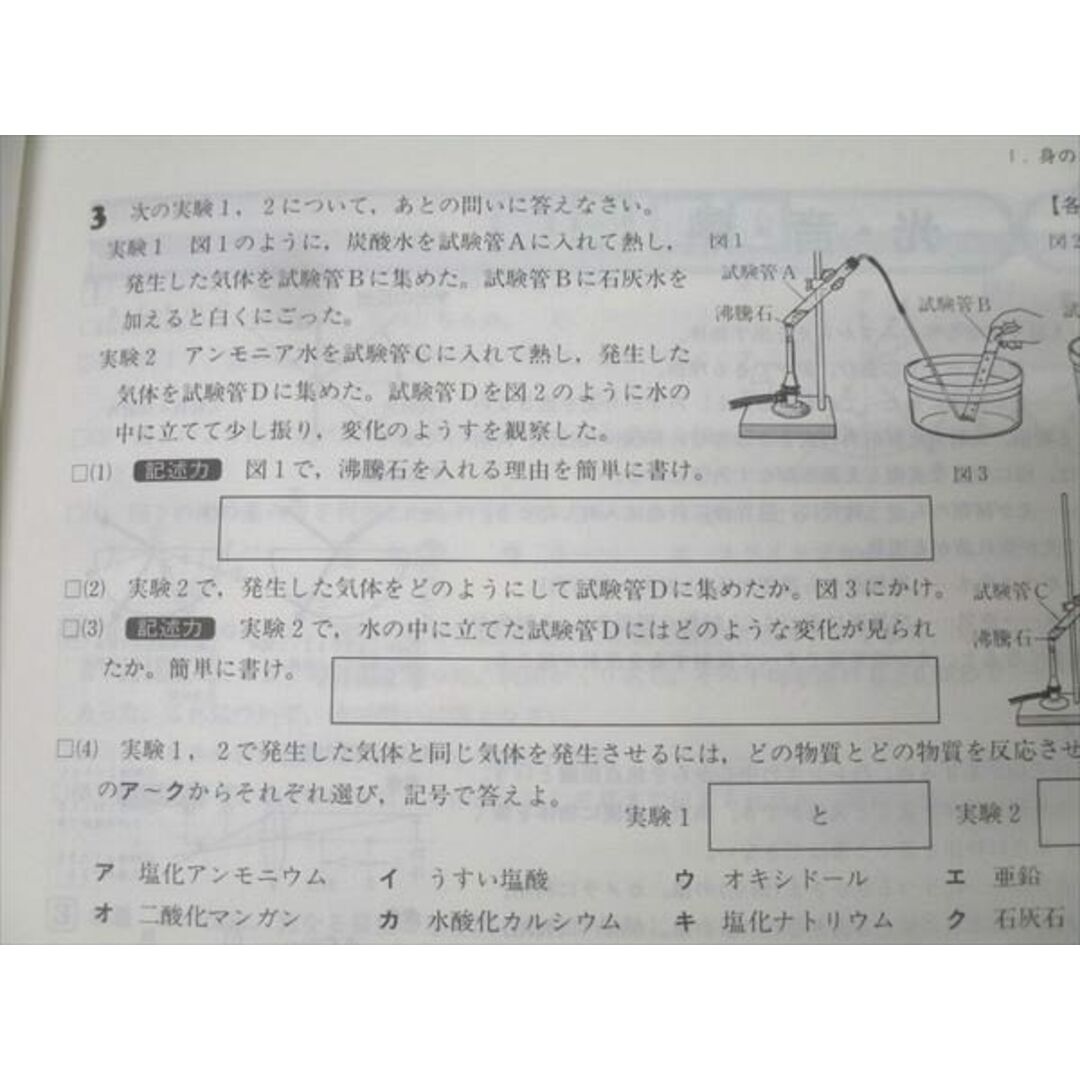 1. 身の
3 次の実験1，2について，あとの問いに答えなさい。
【各
実験1 図1のように，炭酸水を試験管Aに入れて熱し，
発生した気体を試験管Bに集めた。試験管Bに石灰水を
加えると白くにごった。
実験2 アンモニア水を試験管Cに入れて熱し，発生した
気体を試験管Dに集めた。試験管Dを図2のように水の
中に立てて少し振り，変化のようすを観察した。
図1
試験管A
沸騰石
試験管B
図2
試
□(1) 記述力 図1で，沸騰石を入れる理由を簡単に書け。
図3
□(2) 実験2で，発生した気体をどのようにして試験管Dに集めたか。図3にかけ。
試験管C
沸騰石
□(3) 記述力 実験2で，水の中に立てた試験管Dにはどのような変化が見られ
たか。簡単に書け。
□(4) 実験1，2で発生した気体と同じ気体を発生させるには，どの物質とどの物質を反応させ
のア～クからそれぞれ選び，記号で答えよ。
実験1 と 実験2
ア 塩化アンモニウム イ うすい塩酸 ウ オキシドール エ 亜鉛
オ 二酸化マンガン カ 水酸化カルシウム キ 塩化ナトリウム ク 石灰石